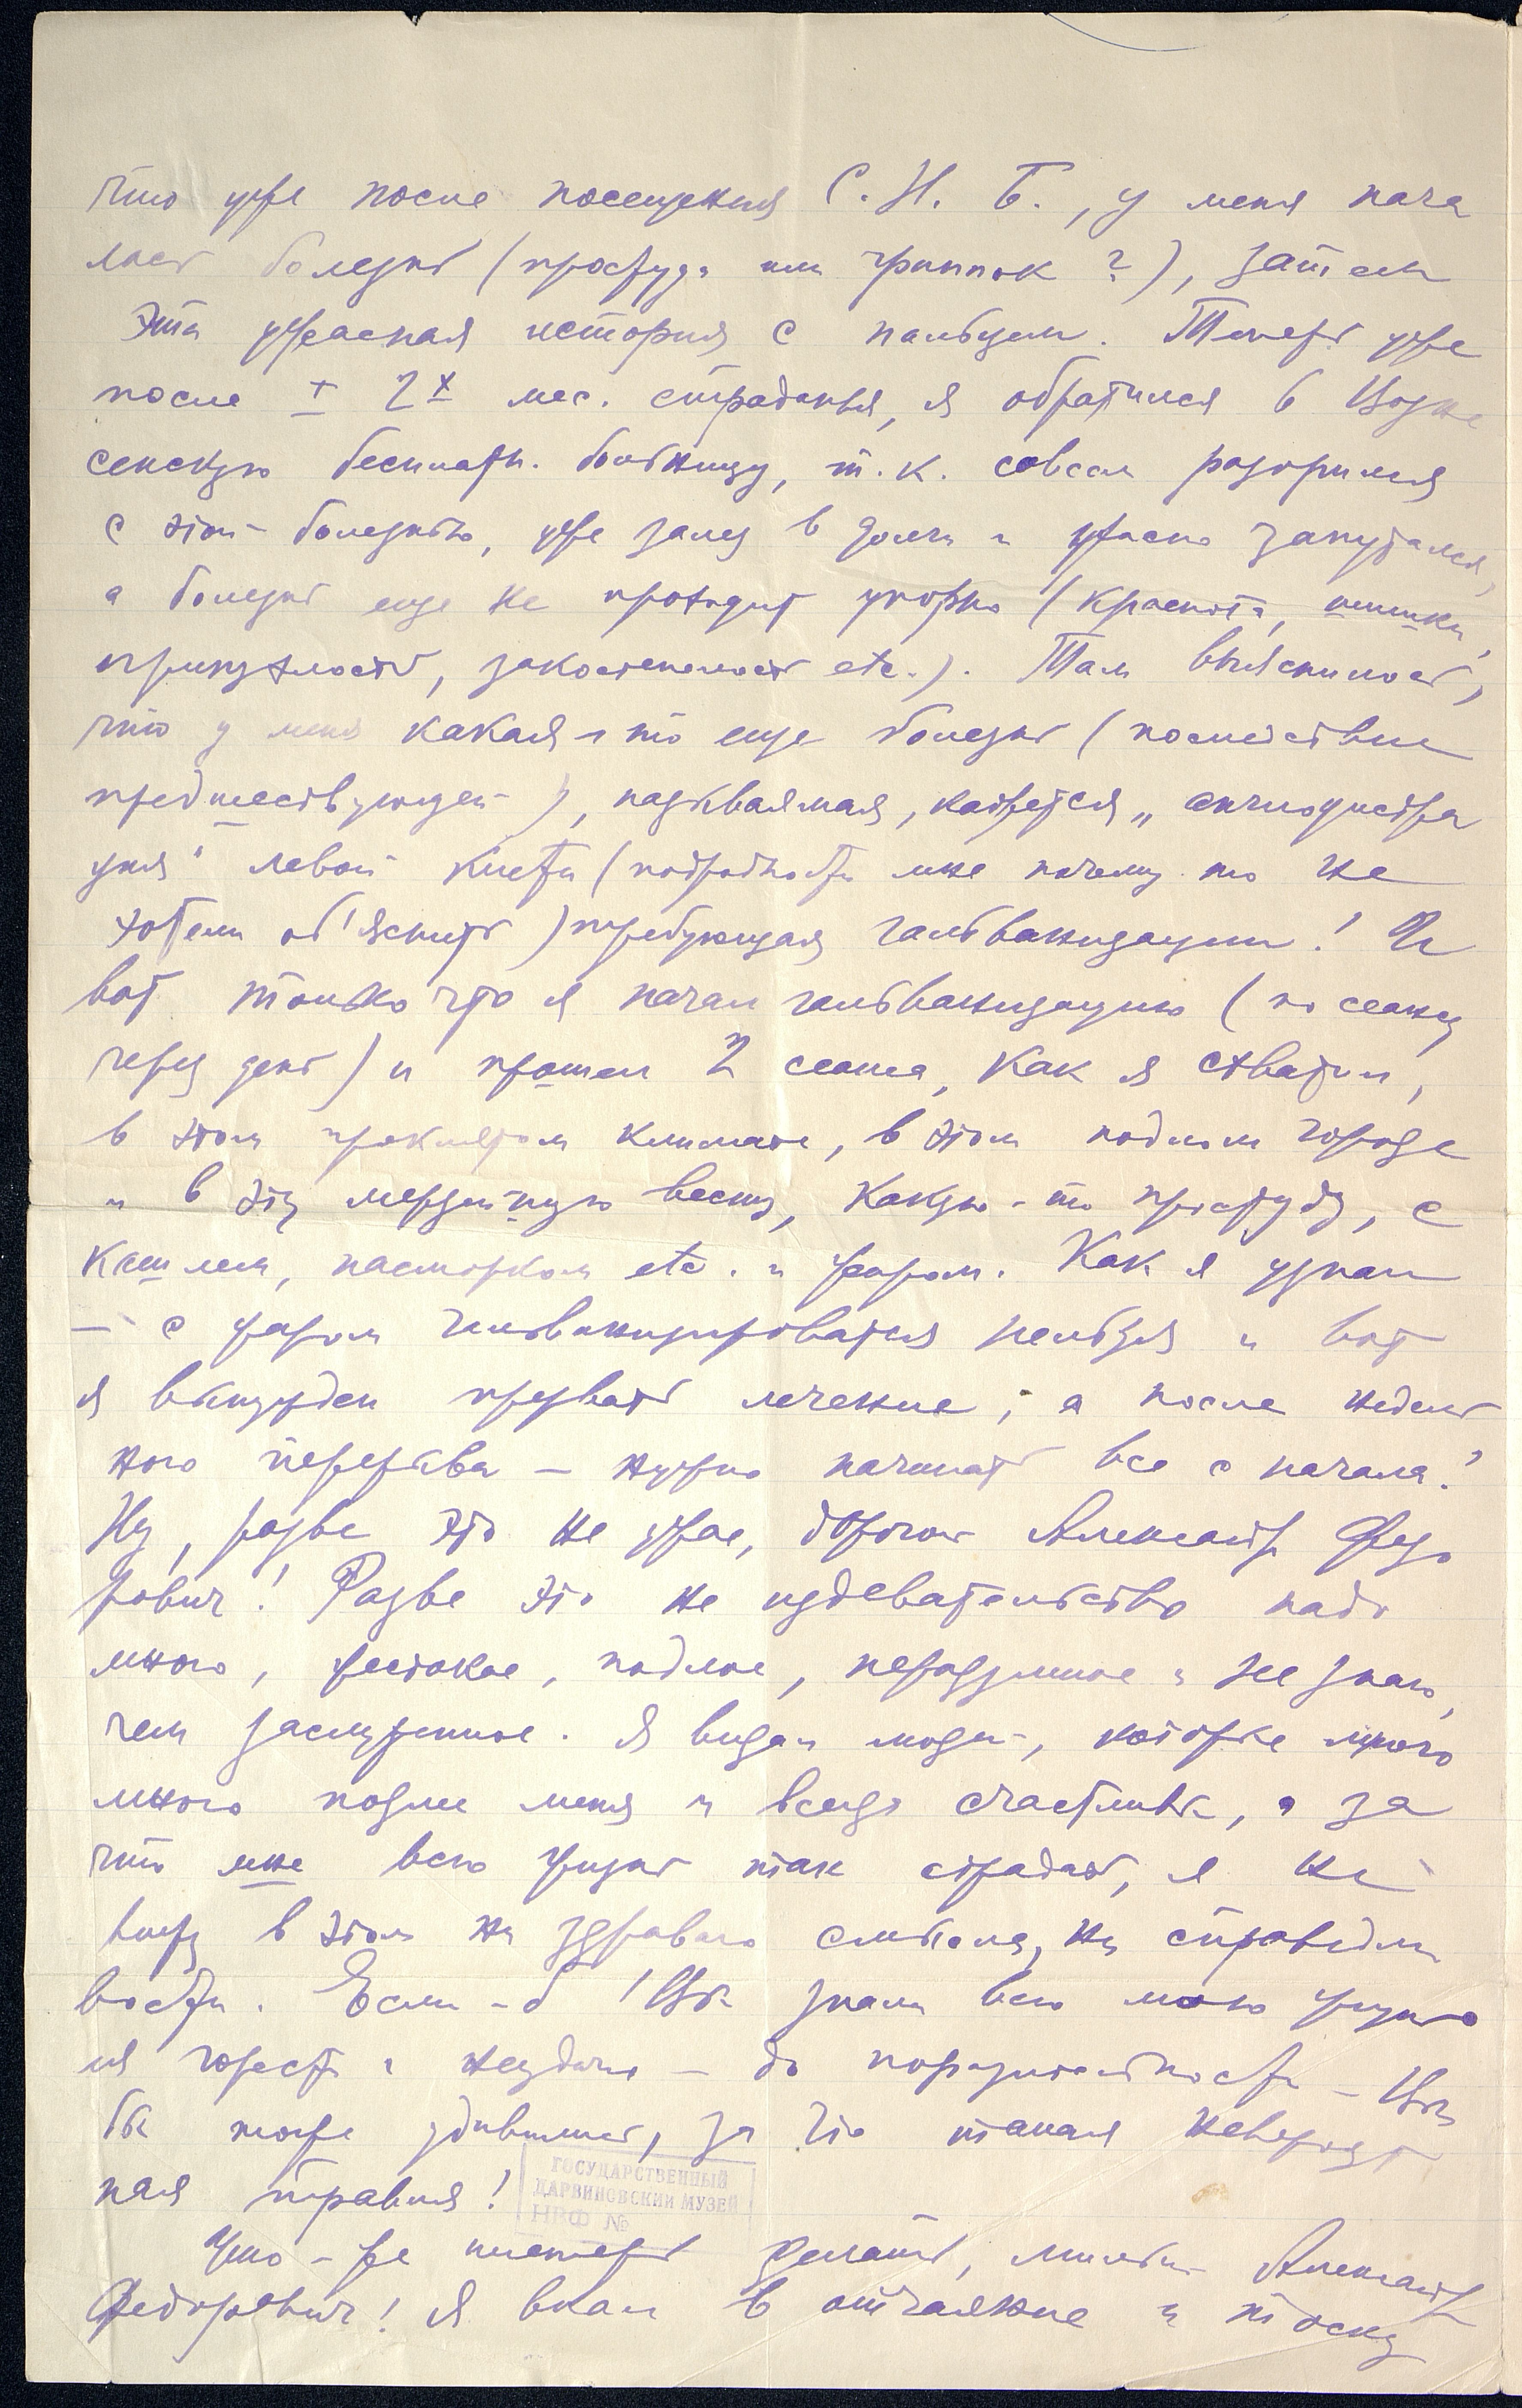 что уже после посещения С. Н. Б., у меня нача
лась болезнь (простуда или грипп ок ?), затем
эта ужасная история с пальцем. Теперь уже
после ± 2х мес. страданья, я обратился в Возне
сенскую бесплатн. больницу, т. к. совсем разорился
с этой болезнью, уже залез в долги и ужасно запутался,
а болезнь еще не проходит упорно (краснота, шишки,
припухлость, закостенелость etc.). Там выяснилось,
что у меня какая-то еще болезнь (последствие
предшествующей), называемая, кажется,
ция" левой кисти (подробности мне почему то не
хотели об'яснить) требующая гальванизации! И
вот только что я начал гальванизацию (по сеансу
через день) и прошел 2 сеанса, как я схватил,
в этом проклятом климате, в этом подлом городе
и в эту мерзейшую весну, какую-то простуду, с
кашлем, насморком etc. и жаром. Как я узнал
— с жаром гальванизироваться нельзя и вот
я вынужден прервать лечение; а после недель
ного перерыва — нужно начинать все с начала!
Ну, разве это не ужас, дорогой Александр Федо
рович! Разве это не издевательство надо
мною, жестокое, подлое, неразумное и не знаю,
чем заслуженное. Я видал людей, которые много
много подлее меня и всегда счастливы, а за
что мне всю жизнь так страдать, я не
вижу в этом ни здравого смысла, ни справедли
вости. Если-б Вы знали всю мою жизнь
ея горести и неудачи — до поразительности — Вы
бы тоже удивились, за что такая невероят
ная травля!
ГОСУДАРСТВЕННЫЙ
ДАРВИНОВСКИЙ МУЗЕЙ
НВФ №
Что-же теперь делать, милый Александр
Федорович! Я впал в отчаяние и тоску